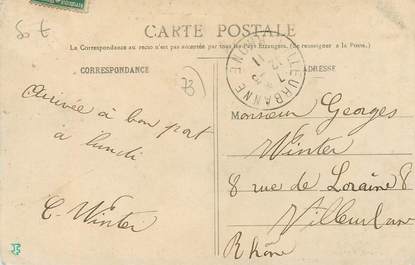 50 t
CARTE POSTALE
La Correspondance au recto n'est pas acceptée par tous les Pays Étrangers. (Se renseigner à la Poste).
CORRESPONDANCE
ADRESSE
73
VILLEURBANNE RHONE
arrivée à bon port
à lundi
C. Winter
Monsieur Georges
Winter
8 rue de Loraine 8
Villeurbane
Rhône